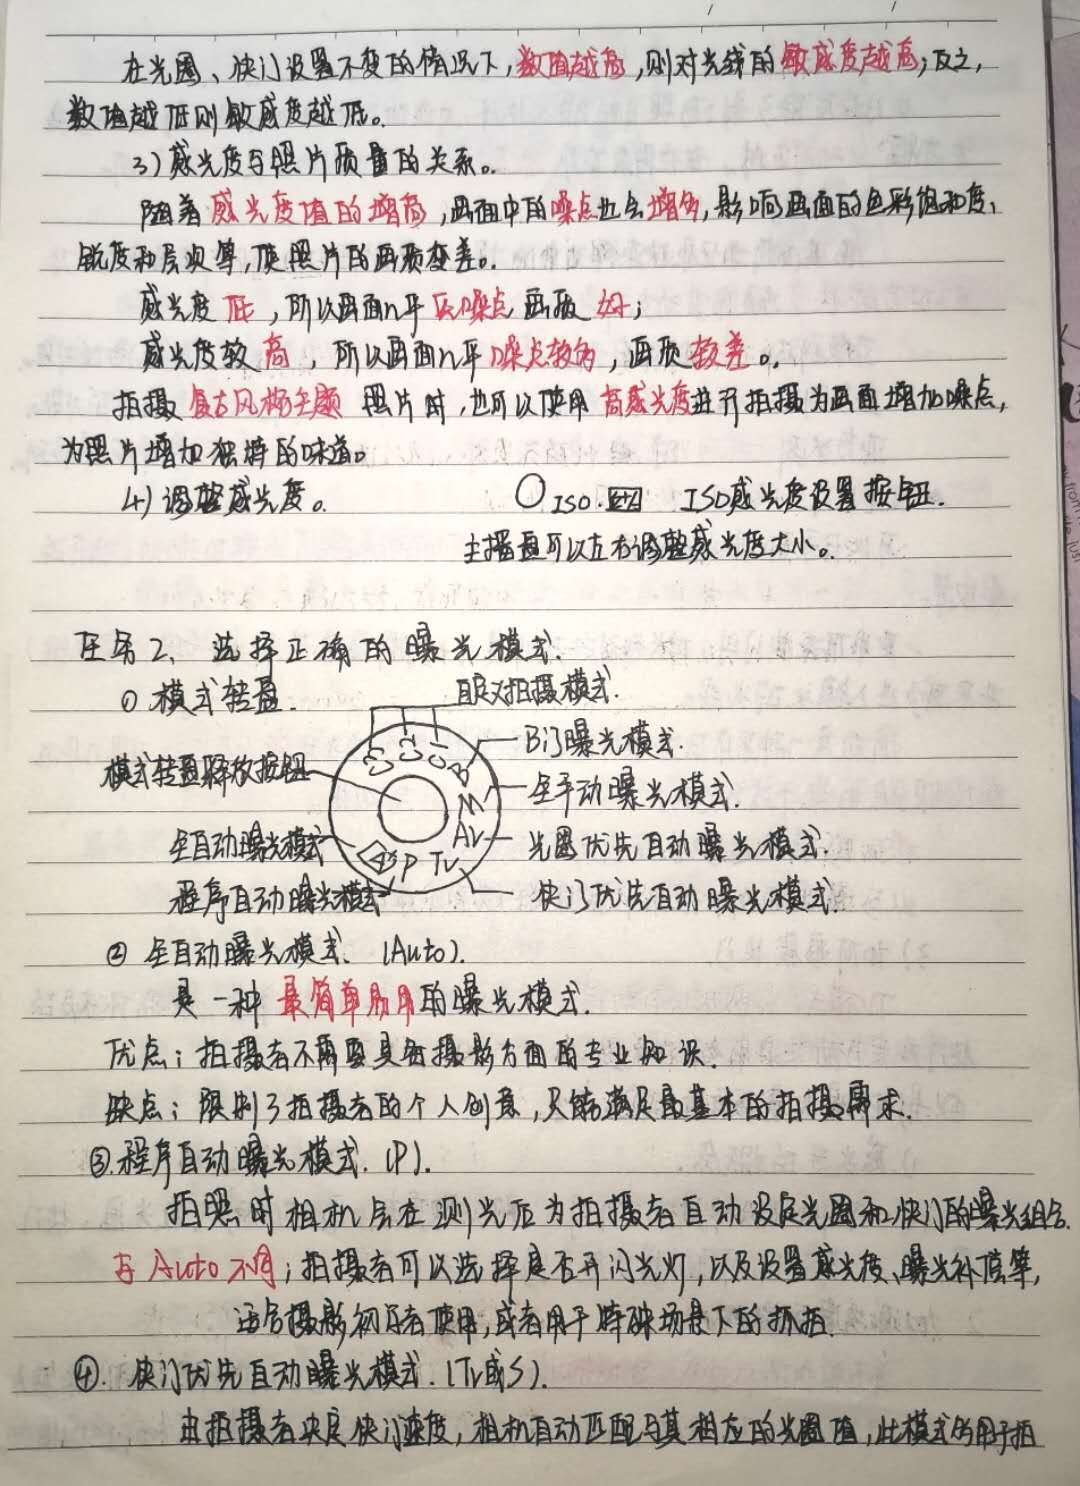 在光圈、快门设置不变的情况下,数值越高,则对光线的敏感度越高;反之,
数值越低则敏感度越低。
3)感光度与照片质量的关系。
随着感光度值的增高,画面中的噪点也会增多,影响画面的色彩饱和度、
锐度和层次等,使照片的画质变差。
感光度低,所以画面几乎无噪点画质好;
感光度较高,所以画面几乎噪点较多,画质较差。
拍摄复古风格主题照片时,也可以使用高感光度进行拍摄为画面增加噪点,
为照片增加独特的味道。
4)调整感光度。 ISO. ISO感光度设置按钮.
主拨盘可以左右调整感光度大小。
任务2、选择正确的曝光模式.
① 模式转盘. 自定义拍摄模式.
C3 C2 C1
B门曝光模式.
B
模式转盘释放按钮
全手动曝光模式.
M
全自动曝光模式
Av 光圈优先自动曝光模式.
A+ P Tv
程序自动曝光模式 快门优先自动曝光模式.
② 全自动曝光模式.(Auto).
是一种最简单易用的曝光模式.
优点;拍摄者不需要具备摄影方面的专业知识.
缺点;限制了拍摄者的个人创意,只能满足最基本的拍摄需求.
③.程序自动曝光模式.(P).
拍照时相机会在测光后为拍摄者自动设定光圈和快门的曝光组合.
与Auto不同;拍摄者可以选择是否开闪光灯,以及设置感光度、曝光补偿等,
适合摄影初学者使用,或者用于特殊场景下的抓拍.
④.快门优先自动曝光模式.(Tv或S).
由拍摄者决定快门速度,相机自动匹配与其相应的光圈值,此模式多用于拍